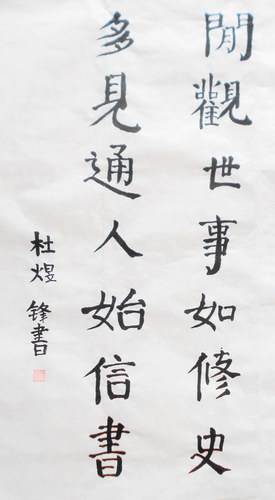 閒觀世事如修史
多見通人始信書
杜煜
锋書